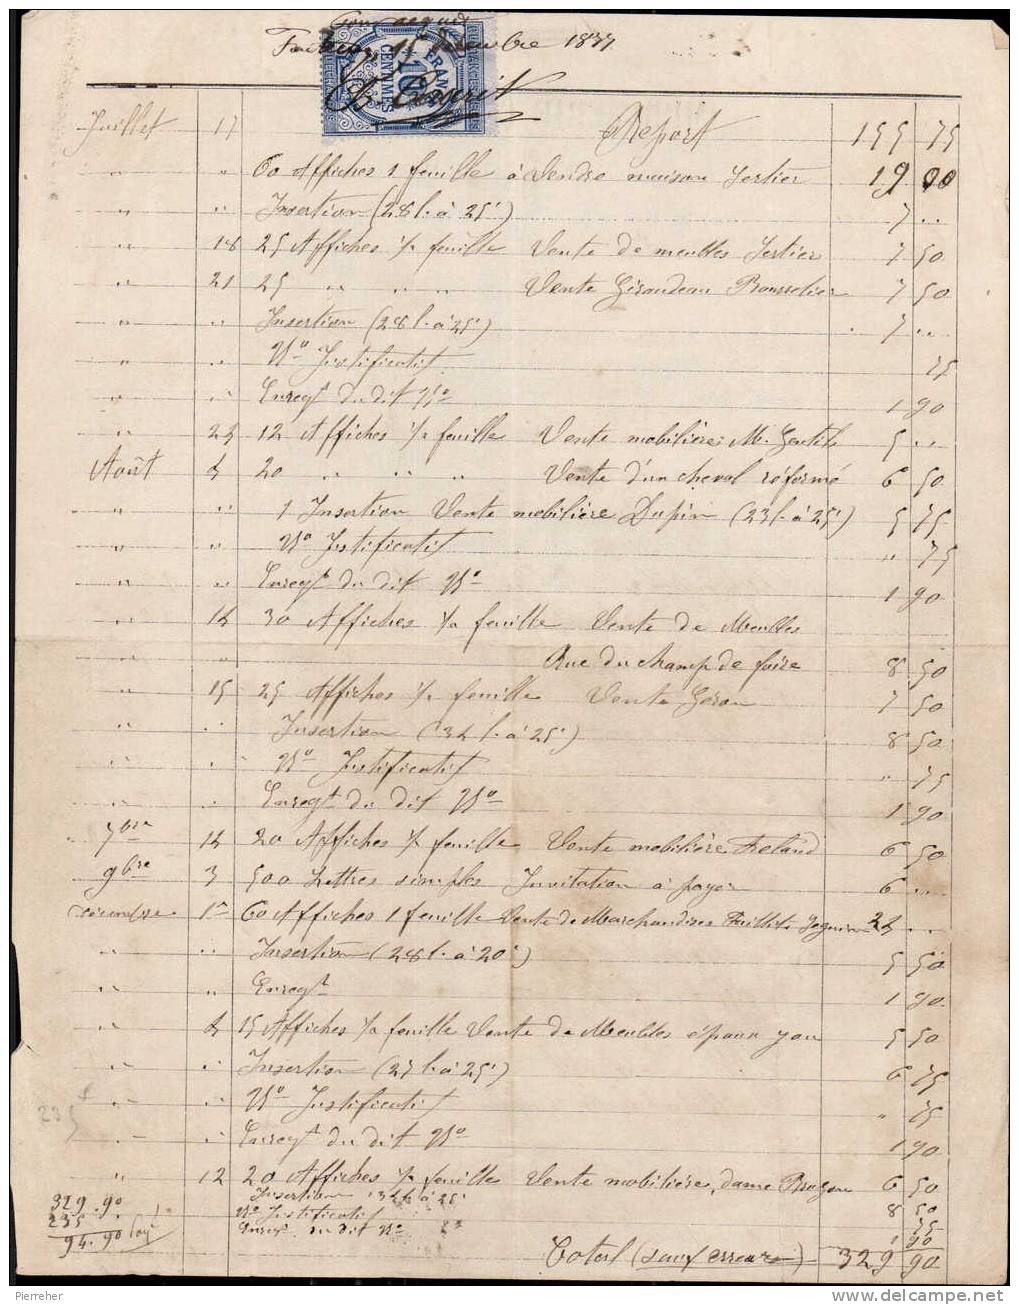 Pour acquit
15 Décembre 1877
10 CENTIMES
Juillet 17 Report 155 75
" " 60 Affiches 1 feuille à Vendre maison Sertier 19 00
" " Insertion (28 l. à 25c) 7 ..
" 18 25 Affiches ½ feuille Vente de meubles Sertier 7 50
" 21 25 " " " Vente Giraudeau Rousselier 7 50
" " Insertion (28 l. à 25c) 7 ..
" " No Justificatif 75
" " Enregt du dit No 1 90
" 23 12 Affiches ½ feuille Vente mobilière M. Gentils 5 ..
Août 4 20 " " " Vente d'un cheval réformé 6 50
" " 1 Insertion Vente mobilière Dupin (23 l. à 25c) 5 75
" " No Justificatif " 75
" " Enregt du dit No 1 90
" 14 30 Affiches ½ feuille Vente de Meubles
" " Rue du champ de foire 8 50
" 15 25 Affiches ½ feuille Vente Géron 7 50
" " Insertion (34 l. à 25c) 8 50
" " No Justificatif " 75
" " Enregt du dit No 1 90
7bre 14 20 Affiches ½ feuille Vente mobilière 6 50
9bre 3 500 Lettres simples Invitation à payer 6 ..
Décembre 1er 60 Affiches 1 feuille Vente de Marchandises Faillite 24 ..
" " Insertion (28 l. à 20c) 5 50
" " Enregt 1 90
" 4 15 Affiches ½ feuille Vente de Meubles époux yon 5 50
" " Insertion (27 l. à 25c) 6 75
" " No Justificatif " 75
" " Enregt du dit No 1 90
" 12 20 Affiches ½ feuille Vente mobilière, dame 6 50
Insertion 34 l. à 25c 8 50
No Justificatif 75
Enregt du dit No 1 90
Total (sauf erreur) 329 90
235
329.90
235
94.90 Payé
Pierreher
www.delcampe.net